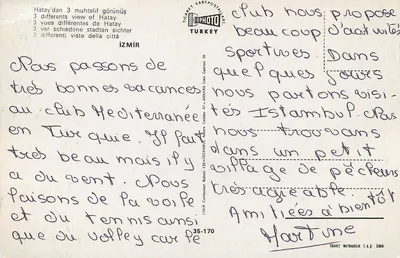 Hatay'dan 3 muhtelif görünüş
3 differents view of Hatay
3 vues différentes de Hatay
3 ver schiedene stadtan sichter
3 differenti viste della città
İZMİR
TURKEY
Nous passons de
très bonnes vacances
au club Mediterranée
en Turquie. Il fait
très beau mais il y
a du vent. Nous
faisons de la voile
et du tennis ainsi
que du volley car le
35-170
club nous propose
beaucoup d'activités
sportives. Dans
quelques jours
nous partons visi-
tés Istambul. Nous
nous trouvons
dans un petit
village de pêcheurs
très agréable.
Amitiées à bientôt
Martine